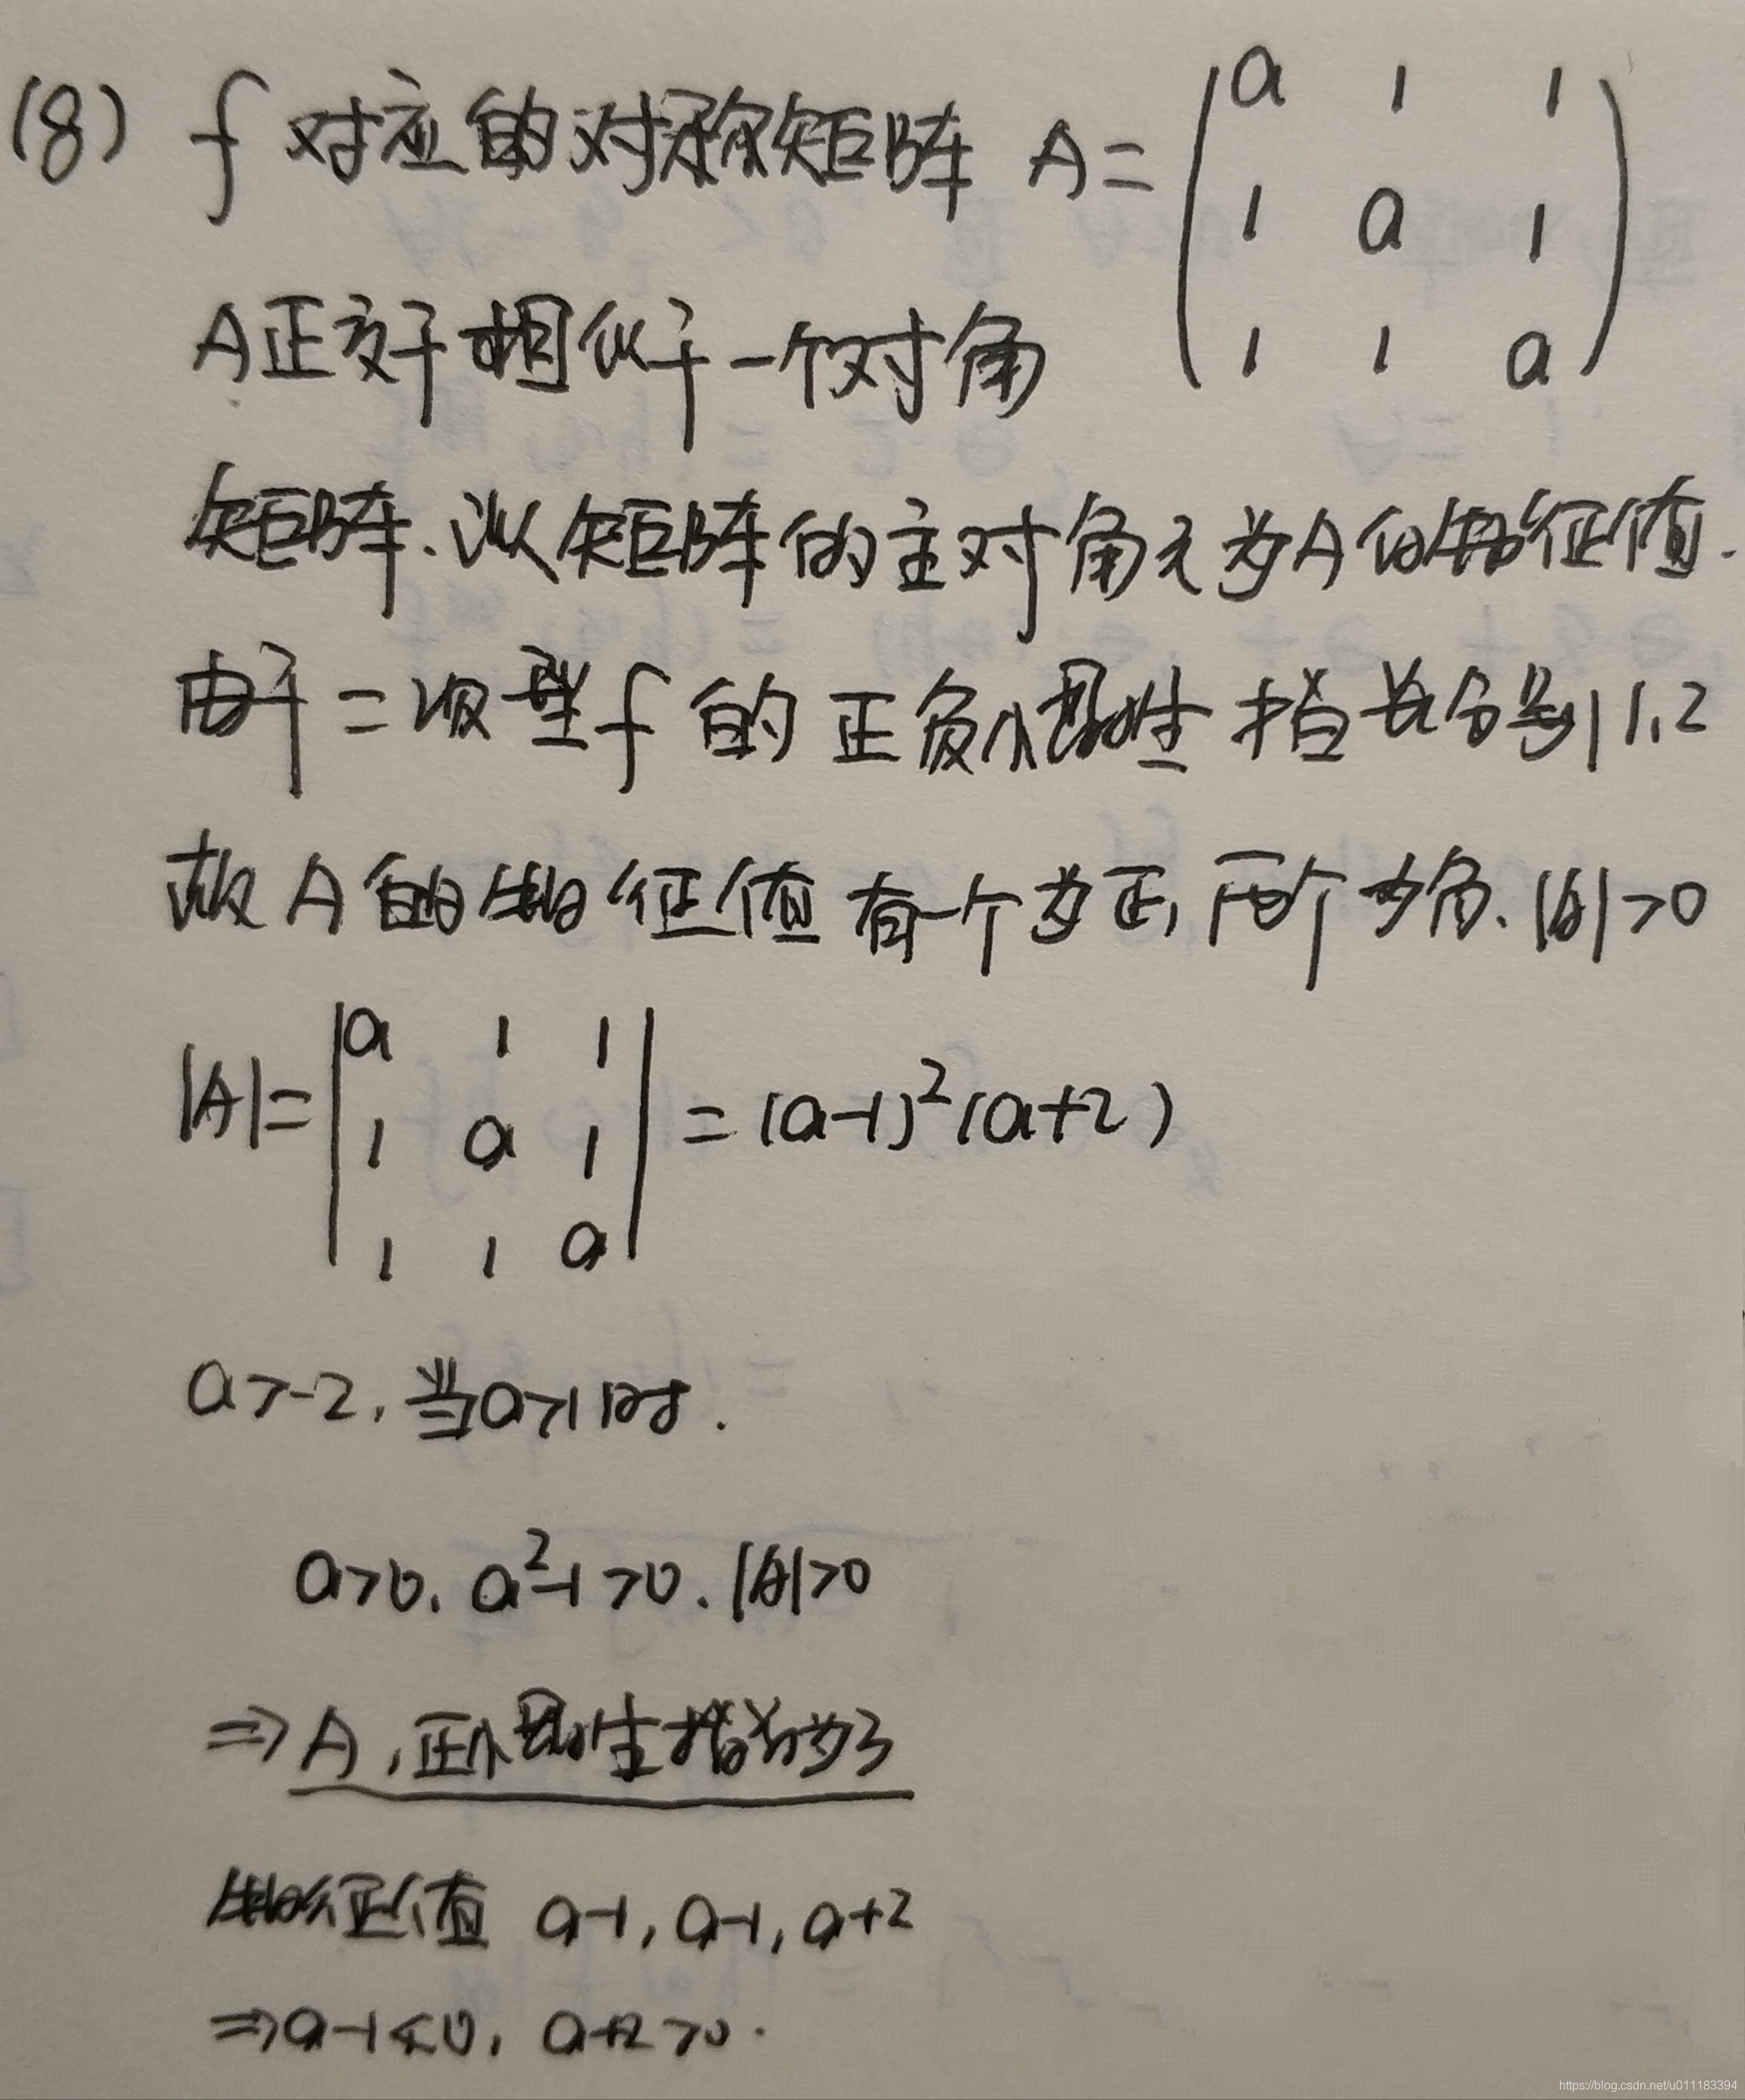 (8) f 对应的对称矩阵 A= ( a 1 1
1 a 1
1 1 a )
A正交于相似于一个对角
矩阵.以矩阵的主对角元为A的特征值.
由于二次型f的正负惯性指数分别1,2
故A的特征值有一个为正,两个为负.|A|>0
|A|= | a 1 1
1 a 1
1 1 a | =(a-1)²(a+2)
a>-2,当a>1时.
a>0. a²-1>0.|A|>0
⇒A,正惯性指数为3
特征值 a-1,a-1,a+2
⇒a-1<0, a+2>0.
https://blog.csdn.net/u011183394